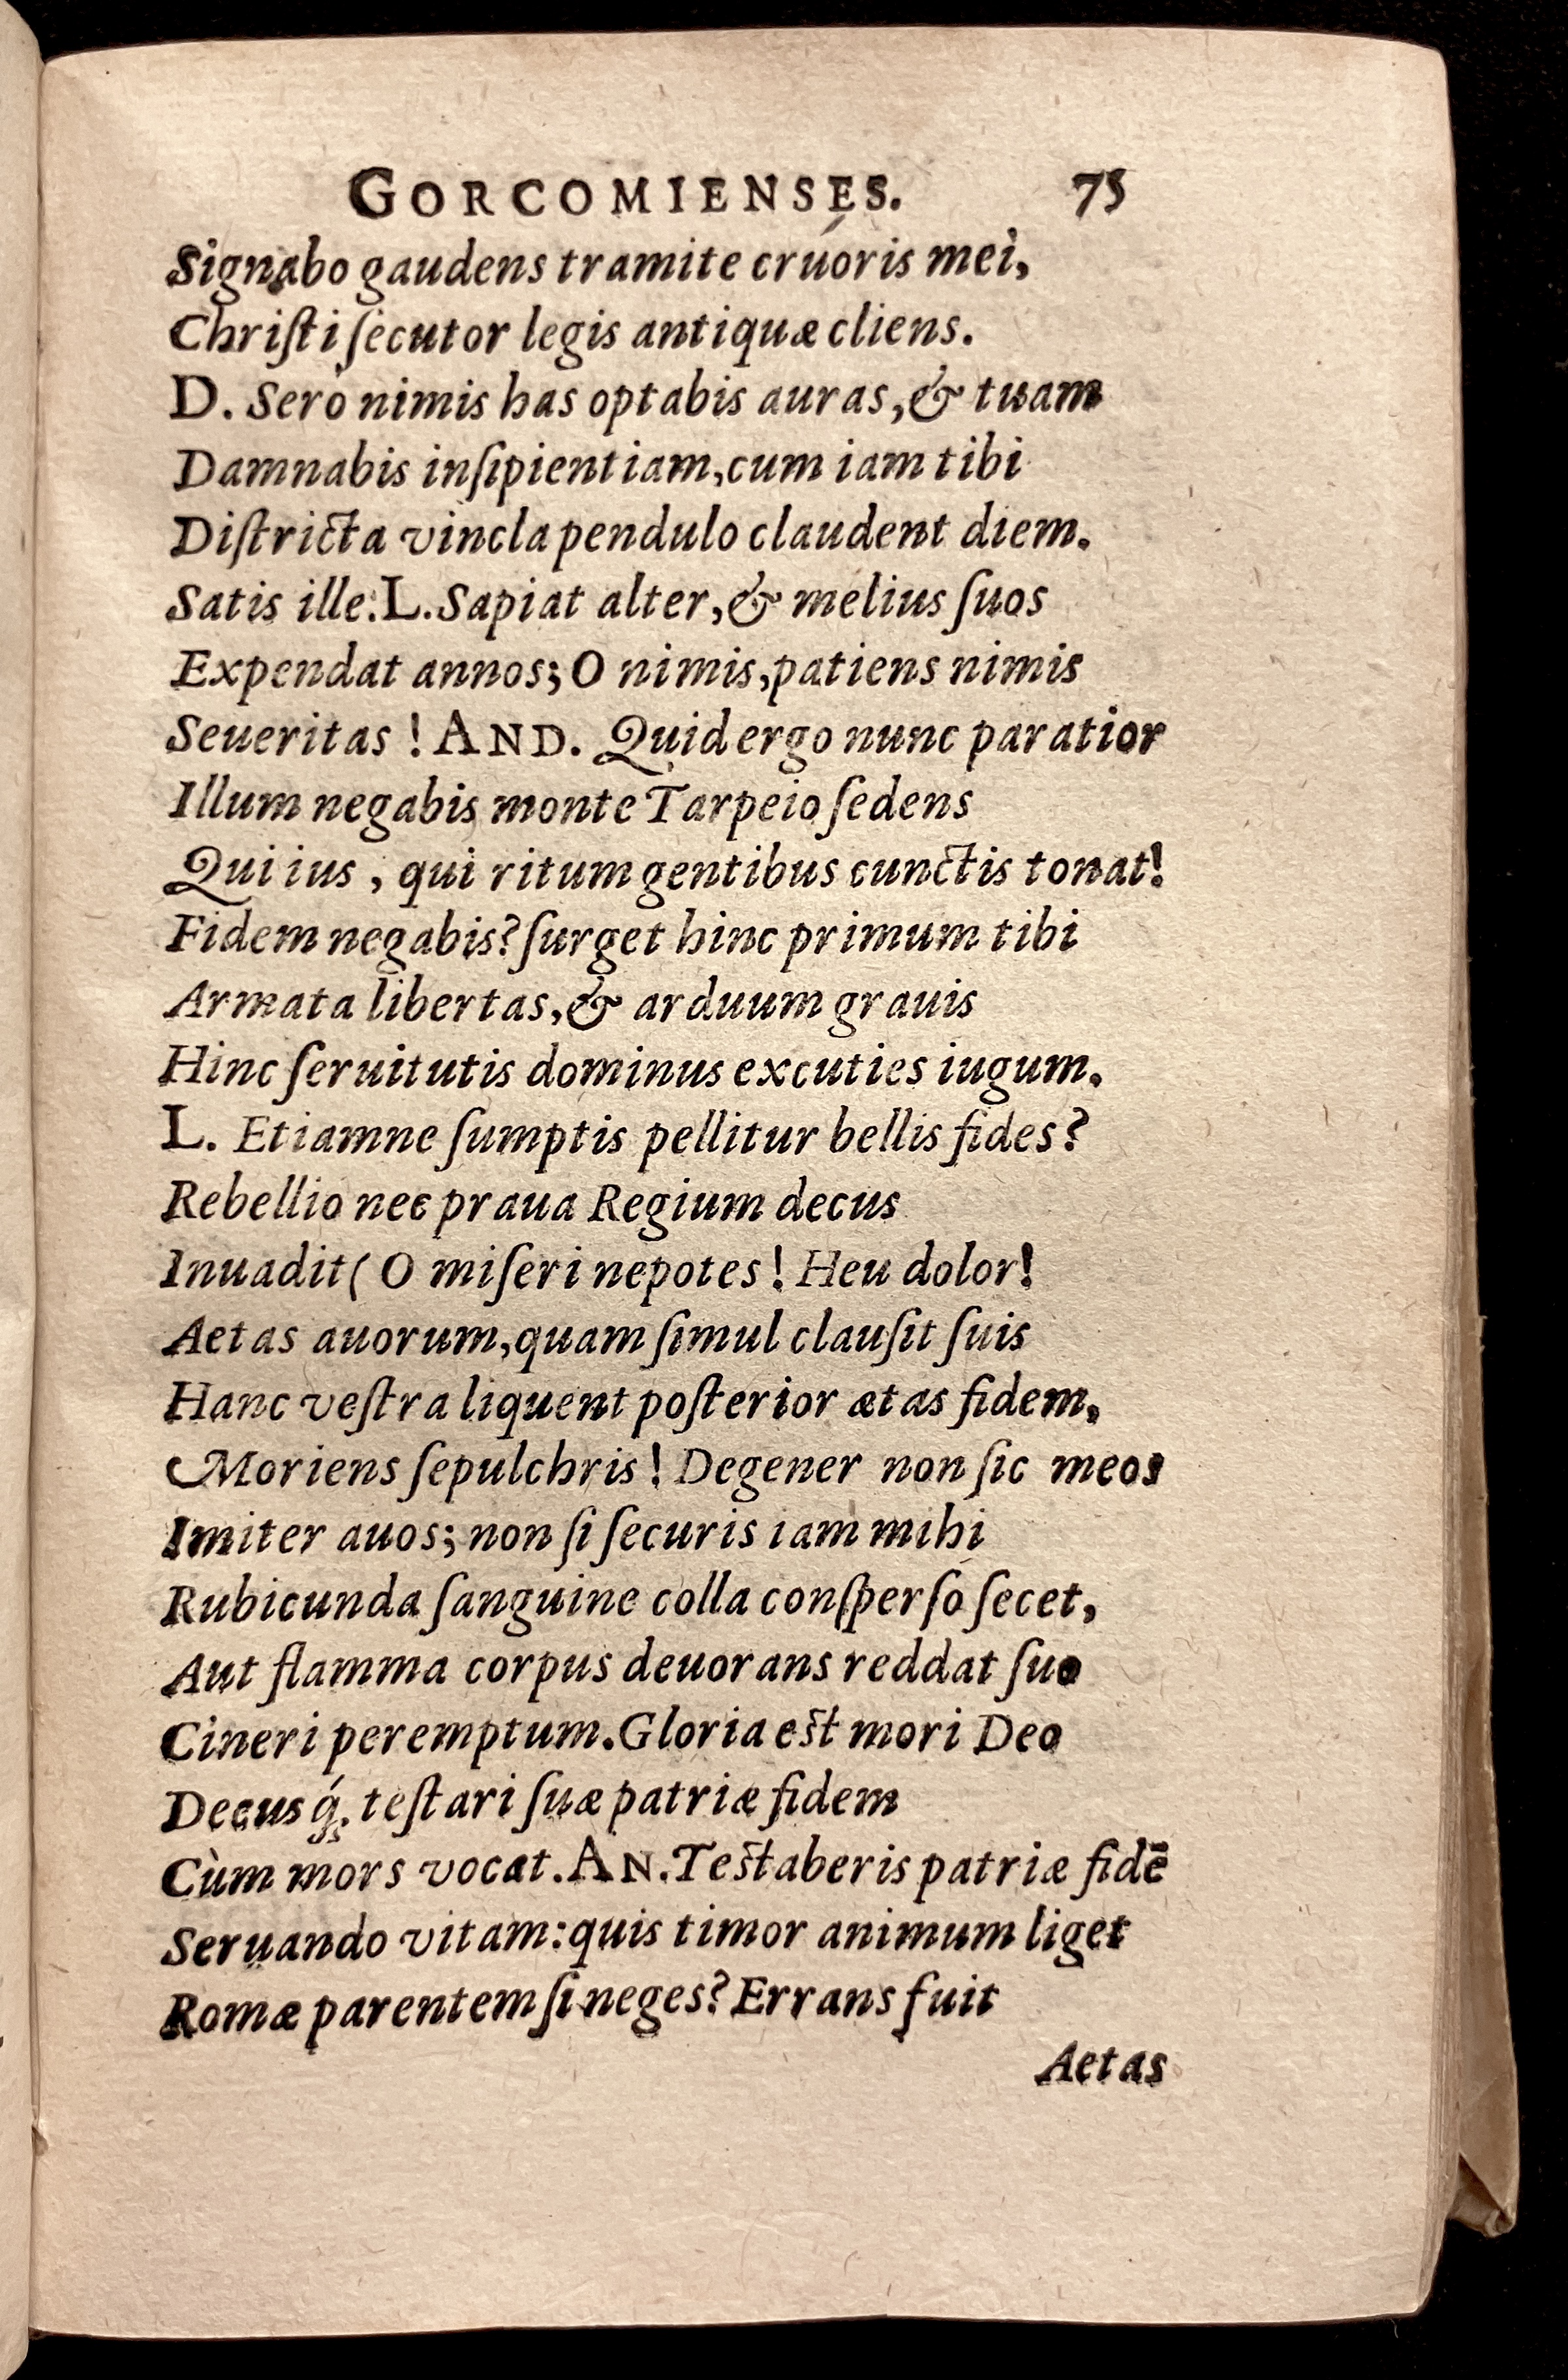 GORCOMIENSES. 75
Signabo gaudens tramite cruoris mei,
Chriſti ſecutor legis antiquæ cliens.
D. Serò nimis has optabis auras,& tuam
Damnabis inſipientiam,cum iam tibi
Diſtricta vincla pendulo claudent diem.
Satis ille.L.Sapiat alter,& melius ſuos
Expendat annos; O nimis,patiens nimis
Seueritas ! AND. Quid ergo nunc paratior
Illum negabis monte Tarpeio ſedens
Qui ius , qui ritum gentibus cunctis tonat!
Fidem negabis? ſurget hinc primum tibi
Armata libertas,& arduum grauis
Hinc ſeruitutis dominus excuties iugum.
L. Etiamne ſumptis pellitur bellis fides?
Rebellio nec praua Regium decus
Inuadit( O miſeri nepotes ! Heu dolor!
Aetas auorum,quam ſimul clauſit ſuis
Hanc veſtra liquent poſterior ætas fidem,
Moriens ſepulchris ! Degener non ſic meos
Imiter auos; non ſi ſecuris iam mihi
Rubicunda ſanguine colla conſperſo ſecet,
Aut flamma corpus deuorans reddat ſuo
Cineri peremptum.Gloria est mori Deo
Decus q́; teſtari ſuæ patriæ fidem
Cùm mors vocat.AN.Testaberis patriæ fidē
Seruando vitam:quis timor animum liget
Romæ parentem ſi neges? Errans fuit
Aetas